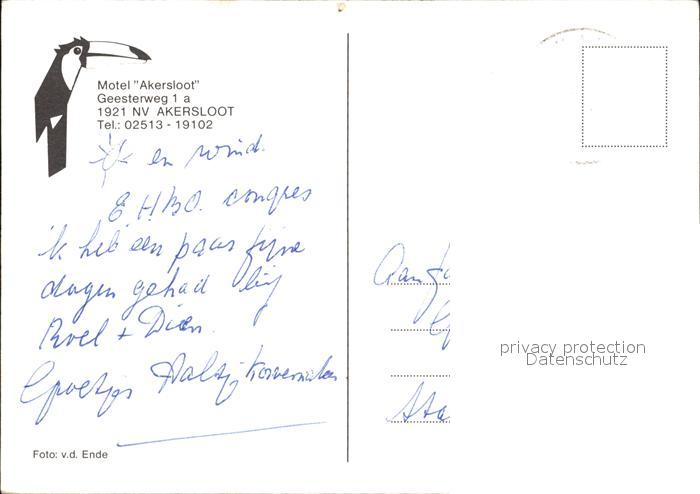 Motel "Akersloot"
Geesterweg 1 a
1921 NV AKERSLOOT
Tel.: 02513 - 19102
en wind.
E.H.B.O. congres
ik heb een paar fijne
dagen gehad bij
Roel + Dien.
Groetjes
Foto: v.d. Ende
privacy protection
Datenschutz